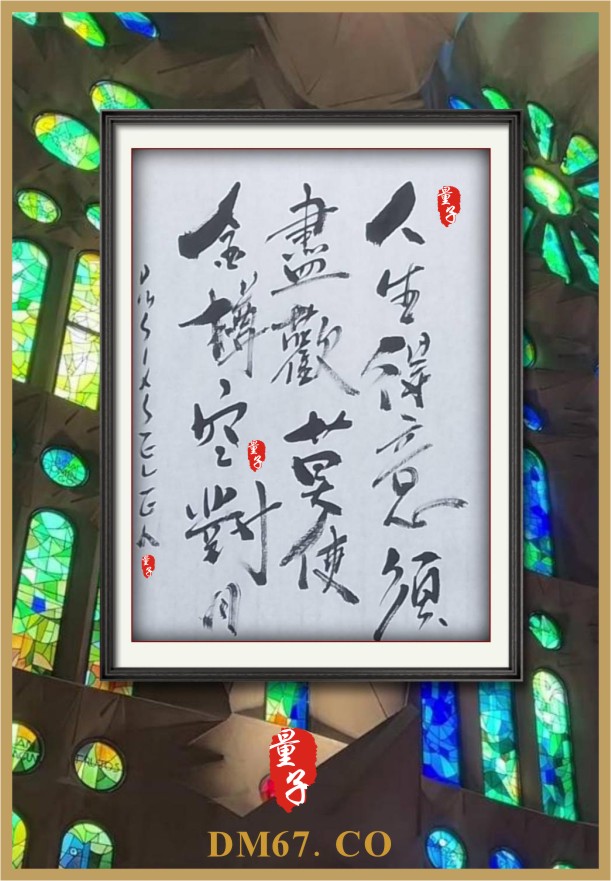 人生得意須
盡歡莫使
金樽空對月
量子
量子
量子
量子
DM67. CO